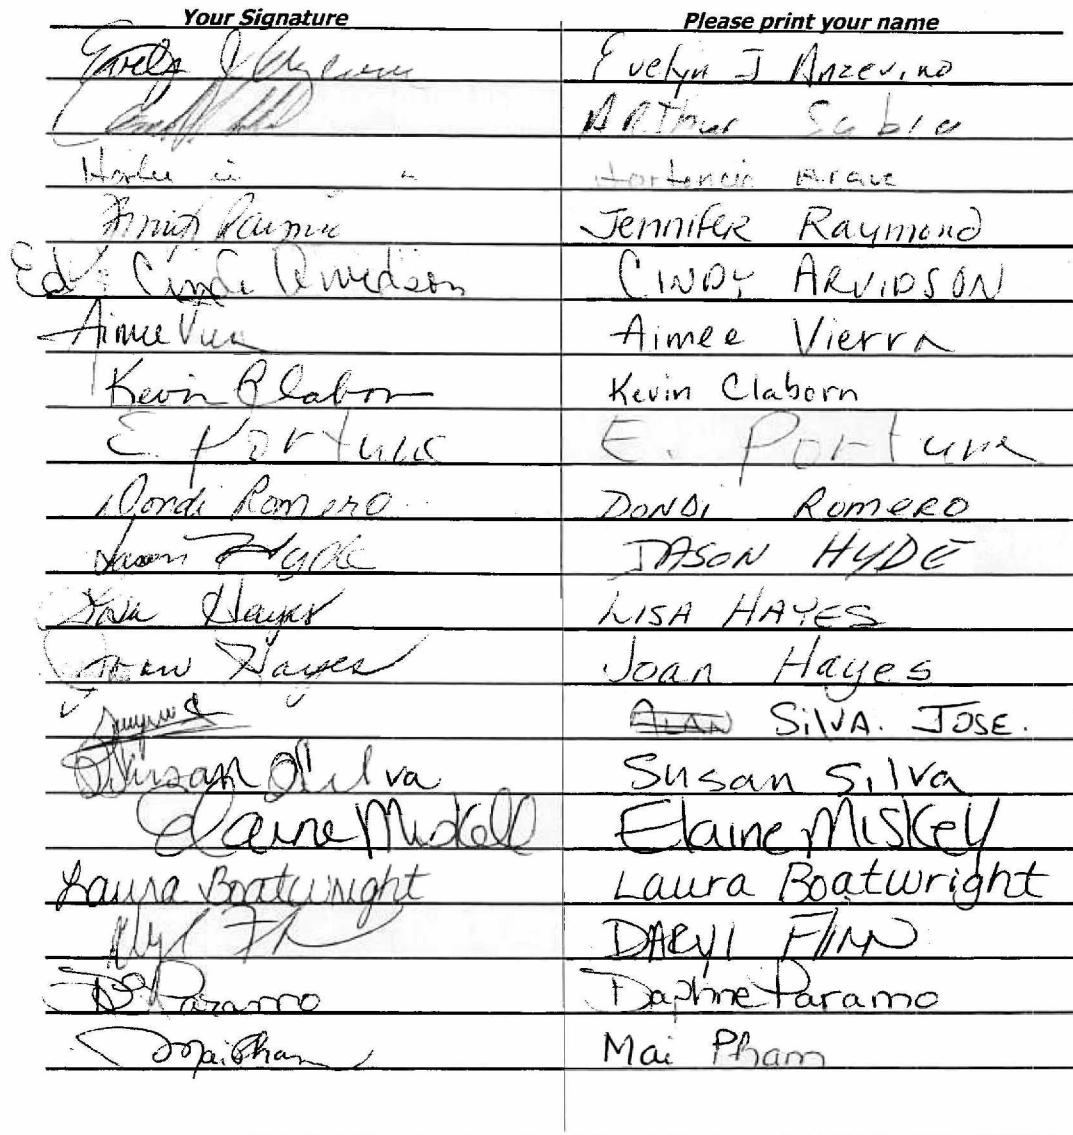 Your Signature Please print your name
Evelyn J Anzevino
Arthur
Hortencia
Jennifer Raymond
Ed & Cindi Arvidson CINDY ARVIDSON
Aimee Aimee Vierra
Kevin Claborn Kevin Claborn
E. Fortuna E. Fortuna
Dondi Romero DONDI ROMERO
Jason Hyde JASON HYDE
Lisa Hayes LISA HAYES
Joan Hayes Joan Hayes
SILVA. JOSE.
Susan Silva Susan Silva
Elaine Elaine Miskey
Laura Boatwright Laura Boatwright
DARYL FLINN
D Paramo Daphne Paramo
Mai Pham Mai Pham